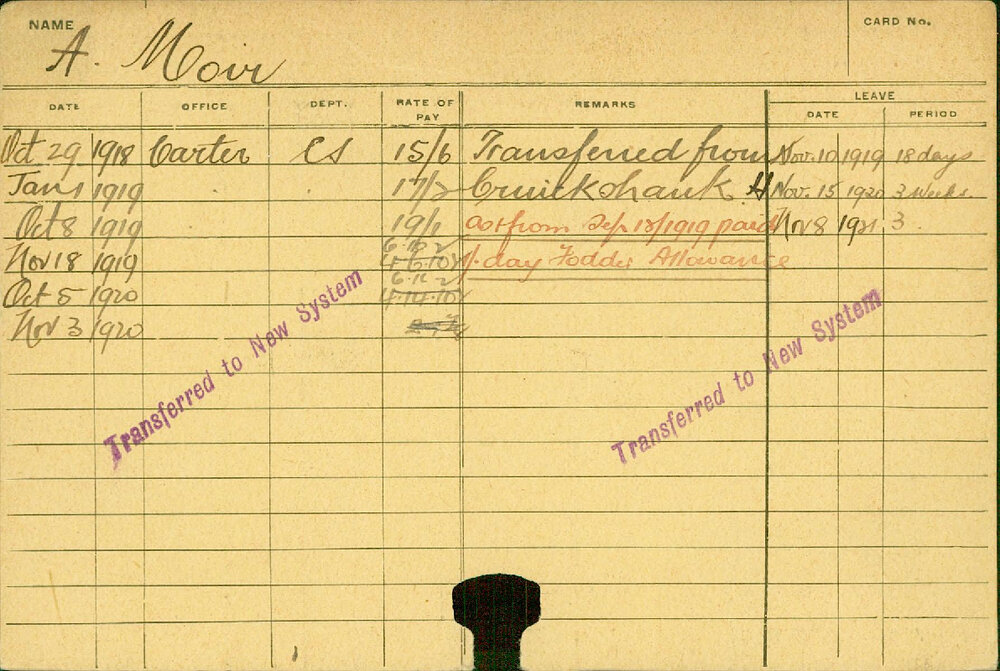 NAME
CARD No.
A. Moir
DATE OFFICE DEPT. RATE OF PAY REMARKS LEAVE
DATE PERIOD
Oct 29 1918 Carter CS 15/6 Transferred from Nov. 10 1919 18 days
Jan 1 1919 17/2 Cruickshank H Nov. 15 1920 3 weeks.
Oct 8 1919 19/1 as from Sep 18/1919 paid Nov 8 1921 3
Nov 18 1919 1/- day Fodder Allowance
Oct 5 1920
Nov 3 1920
Transferred to New System
Transferred to New System